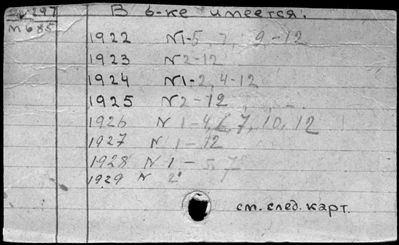 В б-ке имеется:
М 685
1922 № 1-5, 7, 9-12
1923 № 2-12
1924 № 1-2, 4-12
1925 № 2-12
1926 № 1-4, 6, 7, 10, 12
1927 № 1-12
1928 № 1- 5, 7
1929 № 2
см. след. карт.